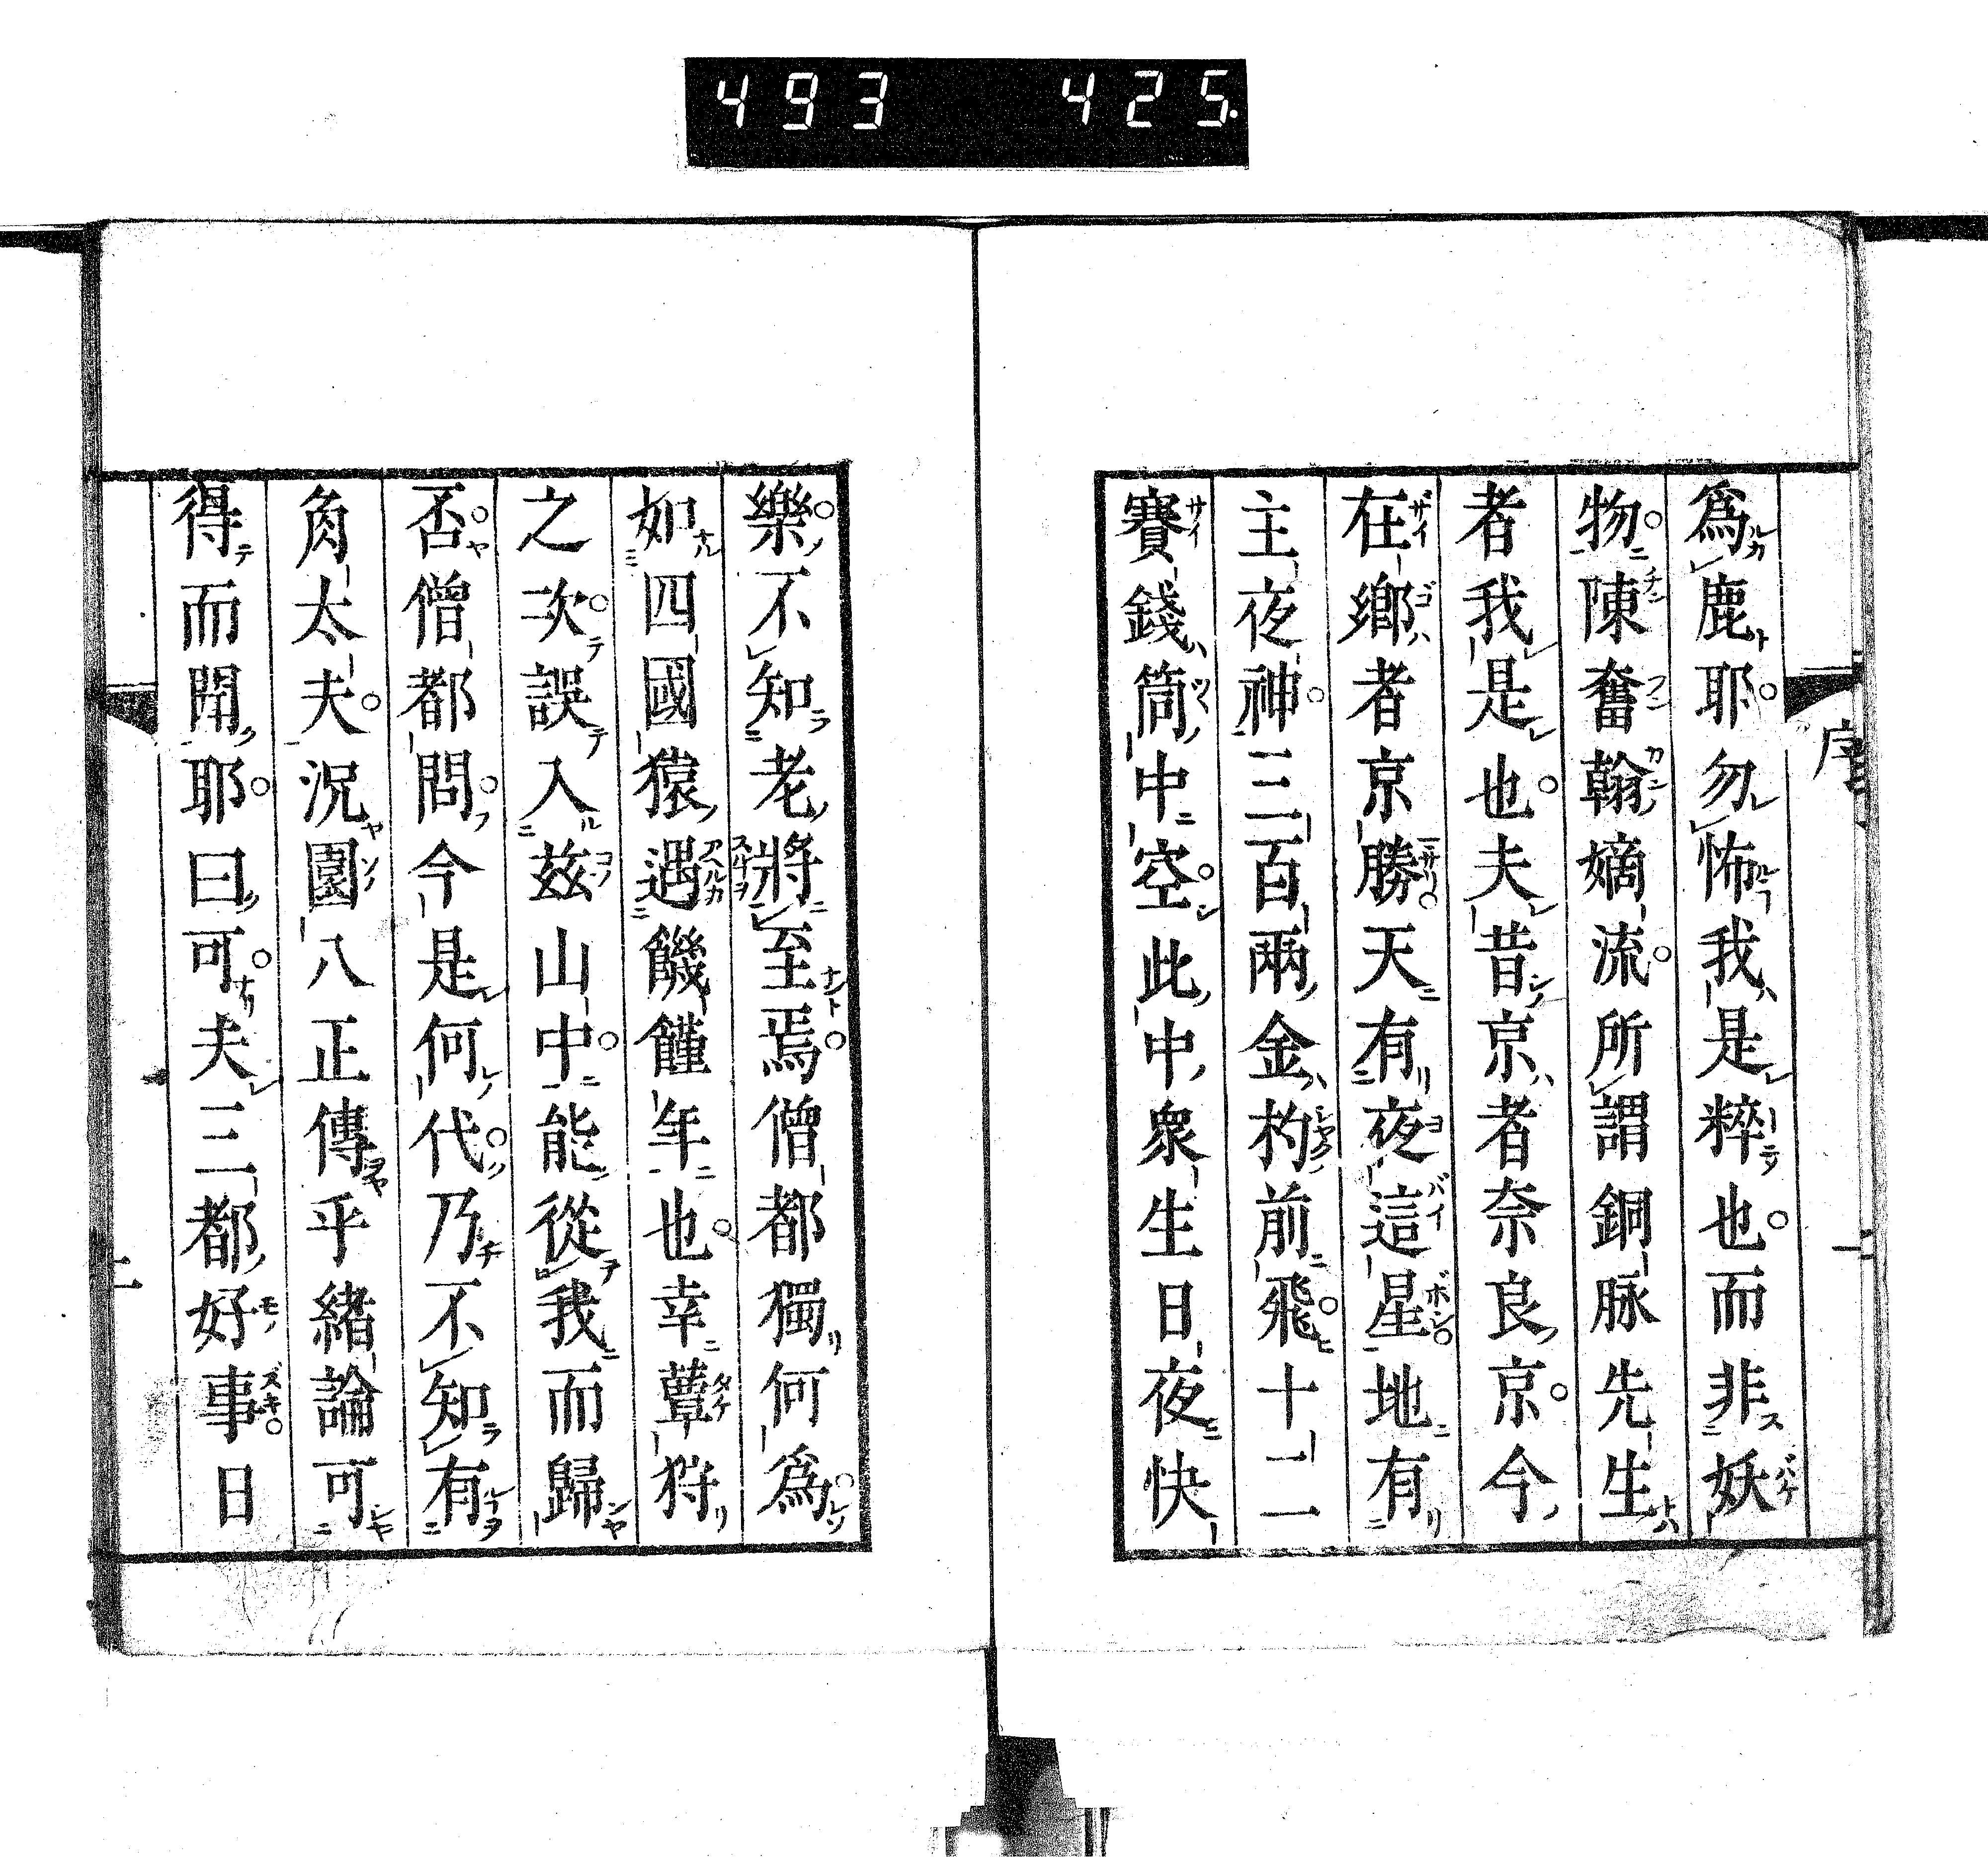 493 425.
序
爲鹿耶勿怖我是粹也而非妖
物陳奮翰嫡流所謂銅脉先生
者我是也夫昔京者奈良京今
在鄉者京勝天有夜這星地有
主夜神三百兩金杓前飛十二
賽錢筒中空此中衆生日夜快
樂不知老將至焉僧都獨何爲
如四國猿遇饑饉年也幸蕈狩
之次誤入茲山中能從我而歸
否僧都問今是何代乃不知有
角太夫況園八正傳乎緒論可
得而聞耶曰可夫三都好事日